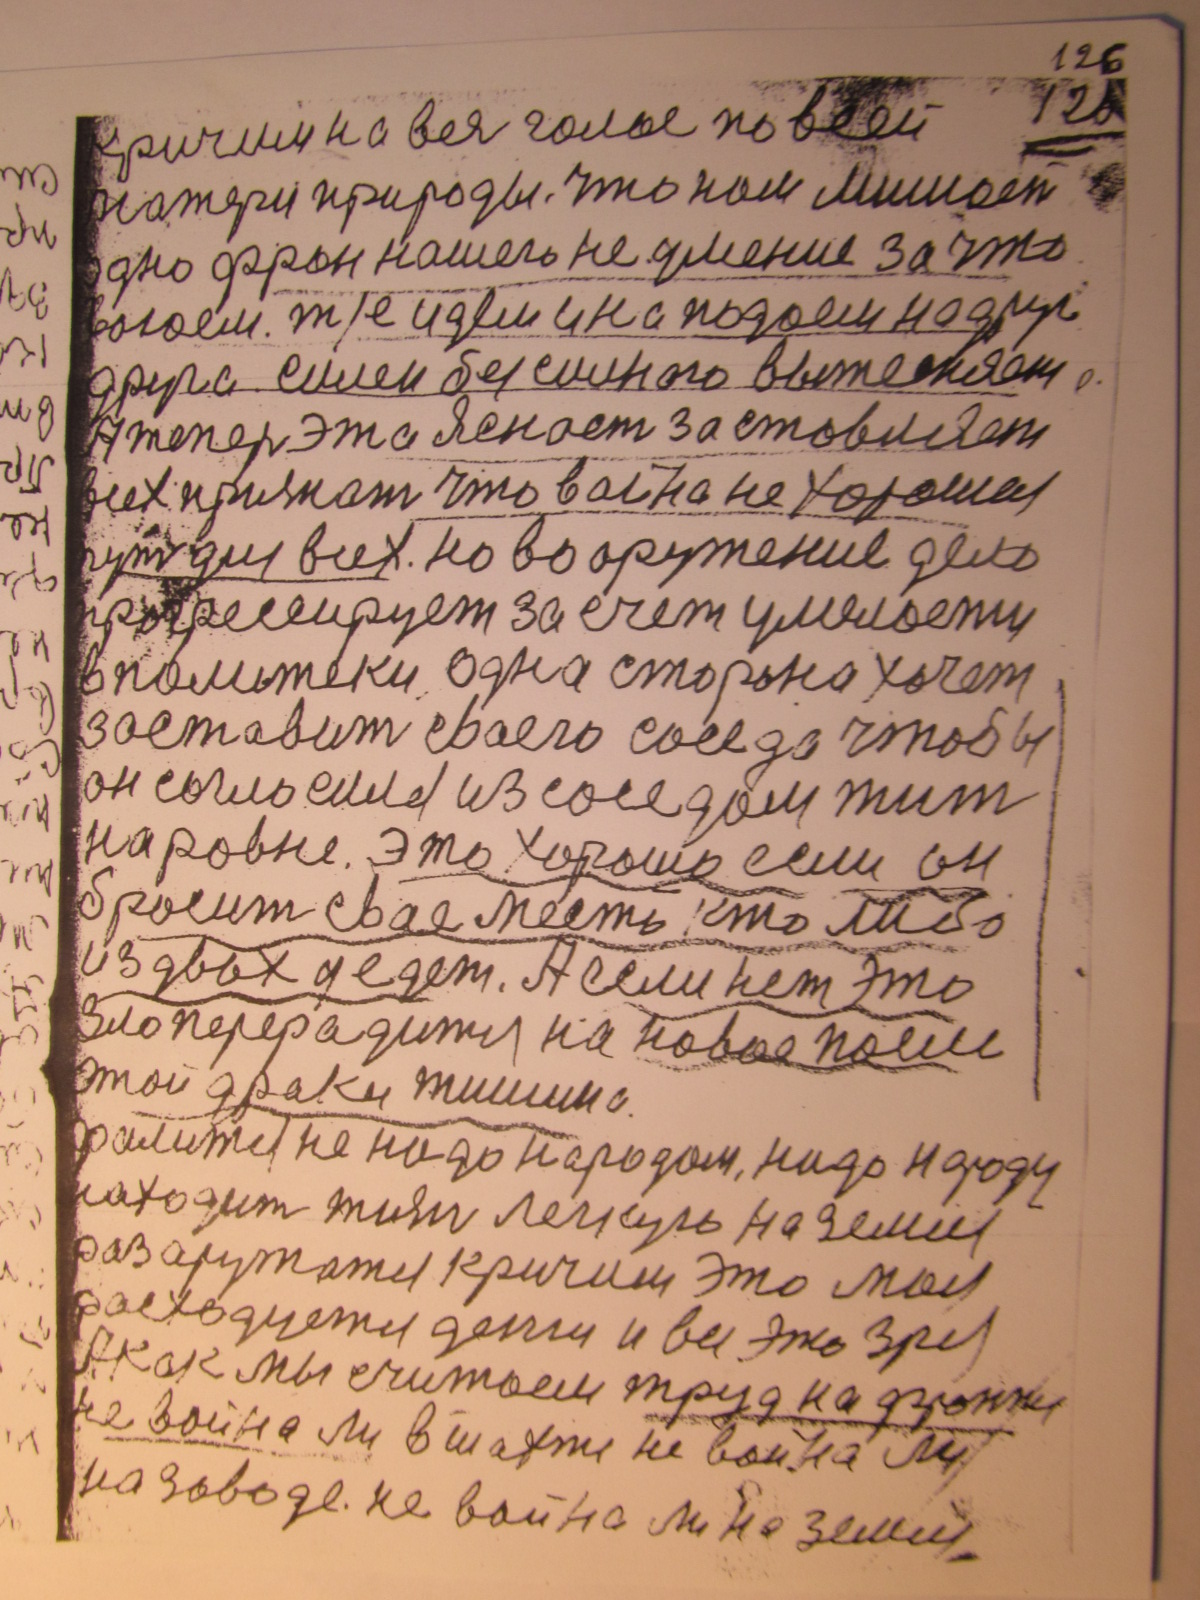 126
125
кричим на вея голас по всей
матери природы. что нам мишает
одно фрон нашего не умение за что
воюем. т/е идем и нападаем на друг
друга силен бессильнго вытесняет.
А тепер эта яснаст заставляет
всех признат что война не хорошая
пут для всех. но вооружение дело
прогрессирует за счет умелости
в политеки одна сторона хочет
заставит сваего соседа чтобы
он согласился из соседом жит
на ровне. Это хорошо если он
бросит свае месть кто либо
из двых уедет. А если нет это
зло перерадится на новае после
этой драки тишина.
не надо народом, надо народу
находит жизн легкую на земли
разаружатся кричим это мы
расходуется денги и все это зря
А как мы считаем труд на
не война ли в шахти не война ли
на заводе. не война ли на земли